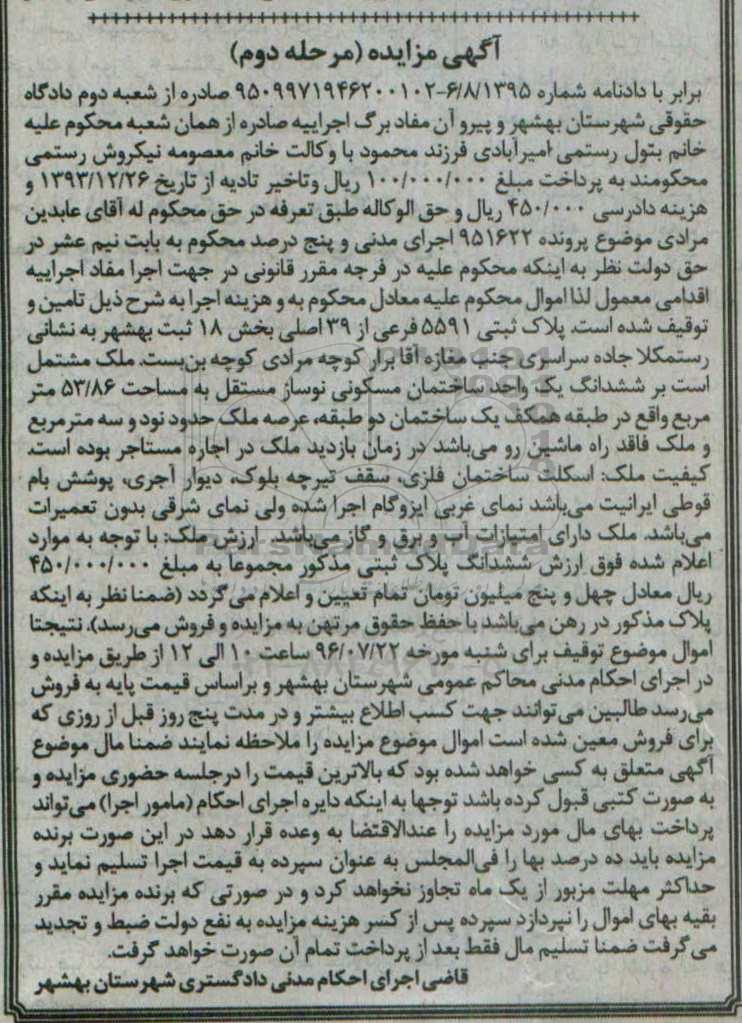 آگهی مزایده (مرحله دوم)
برابر با دادنامه شماره ۶/۸/۱۳۹۵-۹۵۰۹۹۷۱۹۴۶۲۰۰۱۰۲ صادره از شعبه دوم دادگاه
حقوقی شهرستان بهشهر و پیرو آن مفاد برگ اجراییه صادره از همان شعبه محکوم علیه
خانم بتول رستمی امیرآبادی فرزند محمود با وکالت خانم معصومه نیکروش رستمی
محکومند به پرداخت مبلغ ۱۰۰/۰۰۰/۰۰۰ ریال وتاخیر تادیه از تاریخ ۱۳۹۳/۱۲/۲۶ و
هزینه دادرسی ۴۵۰/۰۰۰ ریال و حق الوکاله طبق تعرفه در حق محکوم له آقای عابدین
مرادی موضوع پرونده ۹۵۱۶۲۲ اجرای مدنی و پنج درصد محکوم به بابت نیم عشر در
حق دولت نظر به اینکه محکوم علیه در فرجه مقرر قانونی در جهت اجرا مفاد اجراییه
اقدامی معمول لذا اموال محکوم علیه معادل محکوم به و هزینه اجرا به شرح ذیل تامین و
توقیف شده است. پلاک ثبتی ۵۵۹۱ فرعی از ۳۹ اصلی بخش ۱۸ ثبت بهشهر به نشانی
رستمکلا جاده سراسری جنب مغازه آقا برار کوچه مرادی کوچه بن‌بست. ملک مشتمل
است بر ششدانگ یک واحد ساختمان مسکونی نوساز مستقل به مساحت ۵۳/۸۶ متر
مربع واقع در طبقه همکف یک ساختمان دو طبقه، عرصه ملک حدود نود و سه مترمربع
و ملک فاقد راه ماشین رو می‌باشد در زمان بازدید ملک در اجاره مستاجر بوده است.
کیفیت ملک: اسکلت ساختمان فلزی، سقف تیرچه بلوک، دیوار آجری، پوشش بام
قوطی ایرانیت می‌باشد نمای غربی ایزوگام اجرا شده ولی نمای شرقی بدون تعمیرات
می‌باشد. ملک دارای امتیازات آب و برق و گاز می‌باشد. ارزش ملک: با توجه به موارد
اعلام شده فوق ارزش ششدانگ پلاک ثبتی مذکور مجموعا به مبلغ ۴۵۰/۰۰۰/۰۰۰
ریال معادل چهل و پنج میلیون تومان تمام تعیین و اعلام می‌گردد (ضمنا نظر به اینکه
پلاک مذکور در رهن می‌باشد با حفظ حقوق مرتهن به مزایده و فروش می‌رسد). نتیجتا
اموال موضوع توقیف برای شنبه مورخه ۹۶/۰۷/۲۲ ساعت ۱۰ الی ۱۲ از طریق مزایده و
در اجرای احکام مدنی محاکم عمومی شهرستان بهشهر و براساس قیمت پایه به فروش
می‌رسد طالبین می‌توانند جهت کسب اطلاع بیشتر و در مدت پنج روز قبل از روزی که
برای فروش معین شده است اموال موضوع مزایده را ملاحظه نمایند ضمنا مال موضوع
آگهی متعلق به کسی خواهد شده بود که بالاترین قیمت را درجلسه حضوری مزایده و
به صورت کتبی قبول کرده باشد توجها به اینکه دایره اجرای احکام (مامور اجرا) می‌تواند
پرداخت بهای مال مورد مزایده را عندالاقتضا به وعده قرار دهد در این صورت برنده
مزایده باید ده درصد بها را فی‌المجلس به عنوان سپرده به قیمت اجرا تسلیم نماید و
حداکثر مهلت مزبور از یک ماه تجاوز نخواهد کرد و در صورتی که برنده مزایده مقرر
بقیه بهای اموال را نپردازد سپرده پس از کسر هزینه مزایده به نفع دولت ضبط و تجدید
می‌گرفت ضمنا تسلیم مال فقط بعد از پرداخت تمام آن صورت خواهد گرفت.
قاضی اجرای احکام مدنی دادگستری شهرستان بهشهر